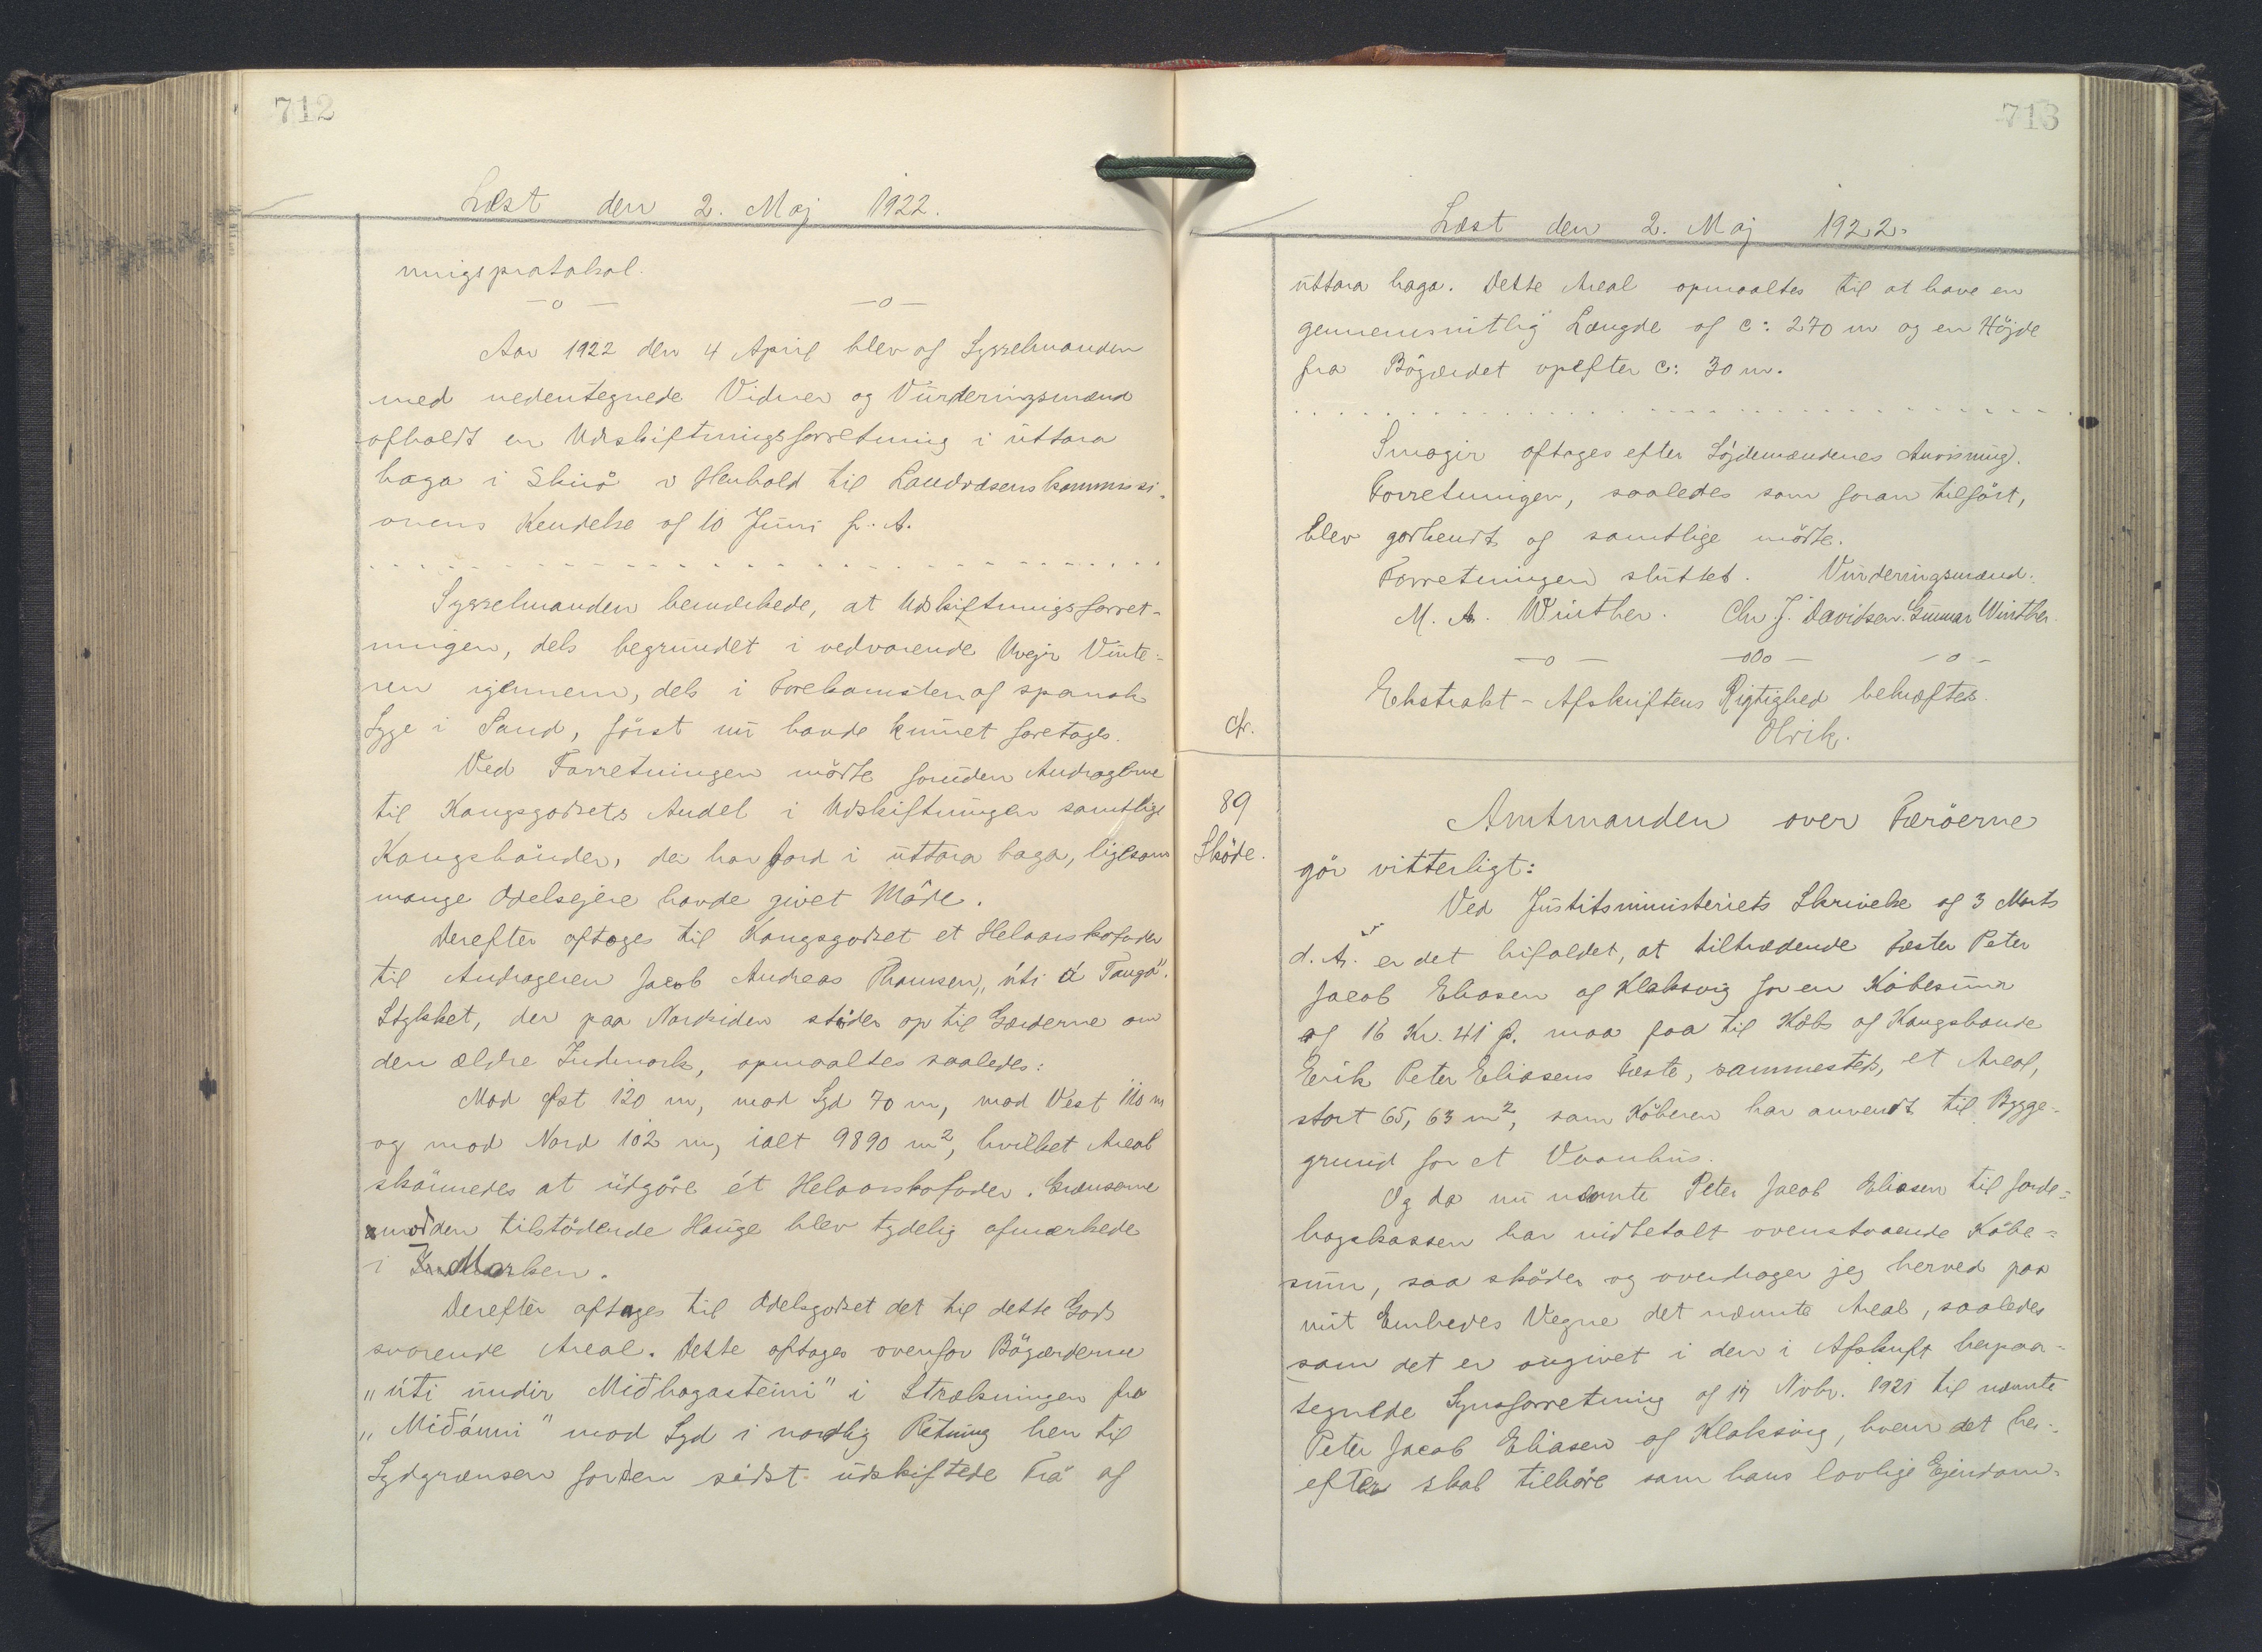 712
Læst den 2. Maj 1922.
ningsprotokol.
—o— —o—
Aar 1922 den 4 April blev af Sysselmanden
med nedentegnede Vidner og Vurderingsmænd
afholdt en Udskiftningsforretning i úttara
haga i Skuö i Henhold til Landvæsenskommissi-
onens Kendelse af 10 Juni f. A.
Sysselmanden bemærkede, at Udskiftningsforret-
ningen, dels begrundet i vedvarende Uvejr Vinte-
ren igennem, dels i Forekomsten af spansk
Syge i Sand, först nu havde kunnet foretages.
Ved Forretningen mödte foruden Andragerne
til Kongsgodsets Andel i Udskiftningen samtlige
Kongsbönder, der har Jord i úttara haga, ligesom
mange Odelsejere havde givet Möde.
Derefter aftoges til Kongsgodset et Helaarskofoder
til Andrageren Jacob Andreas Thomsen, "úti á Tanga".
Stykket, der paa Nordsiden stöder op til Gærderne om
den ældre Indmark, opmaaltes saaledes:
Mod Øst 120 m, mod Syd 70 m, mod Vest 110 m
og mod Nord 102 m, ialt 9890 m², hvilket Areal
skönnedes at udgöre ét Helaarskofoder. Grænserne
mod den tilstödende Hauge blev tydelig afmærkede
i Marken.
Derefter aftoges til Odelsgodset det til dette Gods
svarende Areal. Dette aftoges ovenfor Bögærderne
"úti undir Miðhagasteini" i Strækningen fra
"Miðánni" mod Syd i nordlig Retning hen til
Sydgrænsen for den sidst udskiftede Trö af
713
Læst den 2. Maj 1922.
úttara haga. Dette Areal opmaaltes til at have en
gennemsnitlig Længde af c: 270 m og en Höjde
fra Bögærdet opefter c: 30 m.
Smogir aftoges efter Löjdemændenes Anvisning.
Forretningen, saaledes som foran tilfört,
blev godkendt af samtlige mödte.
Forretningen sluttet. Vurderingsmænd:
M. A. Winther. Chr. J. Davidsen. Gunnar Winther.
—o— —oOo— —o—
Ekstrakt-Afskriftens Rigtighed bekræftes.
Olrik.
cfr.
89
Sköde.
Amtmanden over Færöerne
gör vitterligt:
Ved Justitsministeriets Skrivelse af 3 Marts
d. A. er det bifaldet, at tiltrædende Fæster Peter
Jacob Eliasen af Klaksvig for en Köbesum
af 16 Kr. 41 Ø. maa faa til Köbs af Kongsbonde
Erik Peter Eliasens Fæste, sammesteds, et Areal,
stort 65,63 m², som Köberen har anvendt til Bygge-
grund for et Vaanhus.
Og da nu nævnte Peter Jacob Eliasen til Jorde-
bogskassen har indbetalt ovenstaaende Köbe-
sum, saa sköder og overdrager jeg herved paa
mit Embedes Vegne det nævnte Areal, saaledes
som det er angivet i den i Afskrift herpaa-
tegnede Synsforretning af 17 Novbr. 1921 til nævnte
Peter Jacob Eliasen af Klaksvig, hvem det her-
efter skal tilhöre som hans lovlige Ejendom-